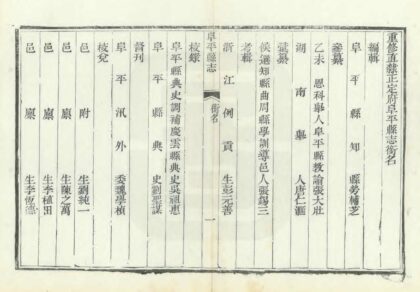 重修直隸正定府阜平縣志銜名
編輯
阜平縣知縣勞輔芝
參纂
乙未恩科舉人阜平縣教諭張大壯
湖南舉人唐仁涵
贰纂
候選知縣曲周縣學訓導邑人張錫三
考輯
浙江例貢生彭元善
阜平縣志 銜名 一
校錄
阜平縣典史調補慶雲縣典史吳祖惠
阜平縣典史劉聖謀
督刊
阜平汛外委魏學楨
校兌
邑附生劉純一
邑廩生陳之萬
邑廩生李植田
邑廩生李恆德